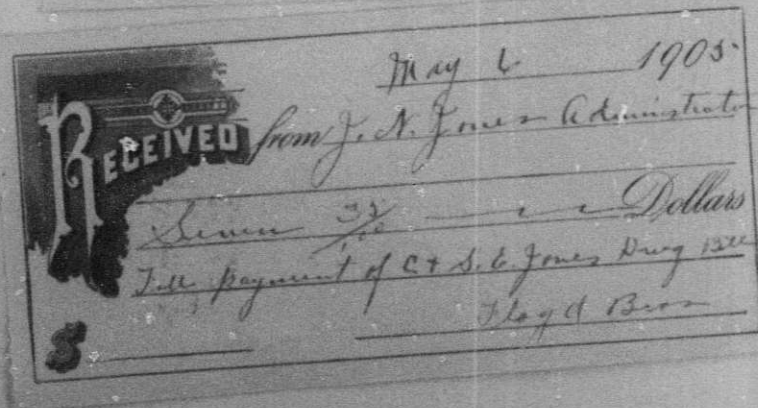 May 6 1905
RECEIVED from J. N. Jones Administrator
Seven 35/100 Dollars
Full payment of C & S. E. Jones Drug Bill
Floyd Bros
$